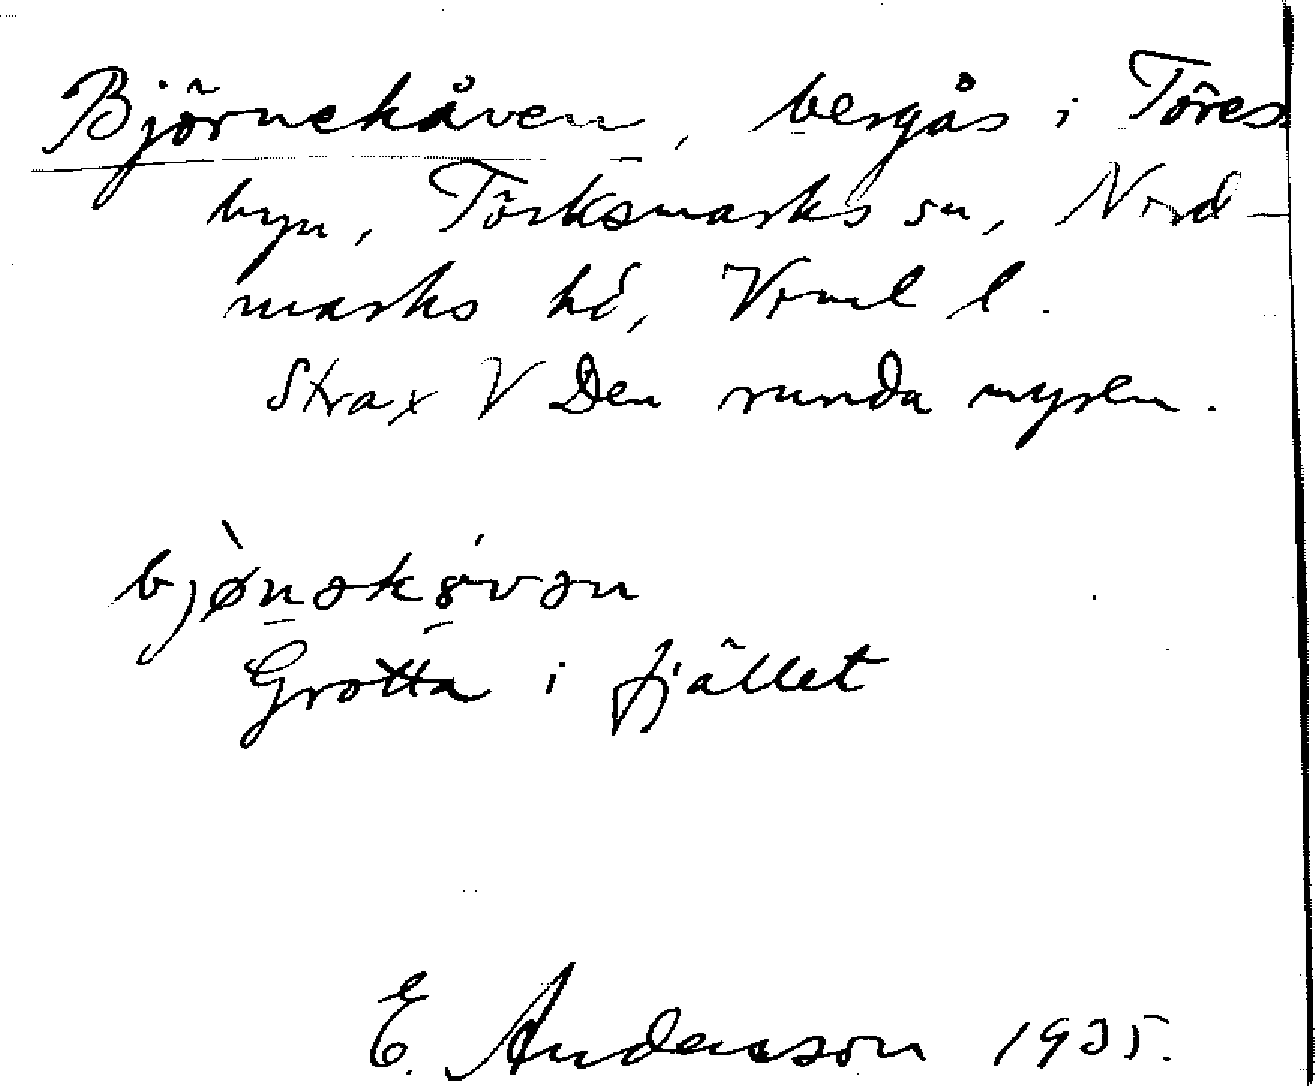 Björnekåven, bergås i Töres-
byn, Törksmarks sn, Nord-
marks hd, Vrml l.
Strax V Den runda myren.
bjø̀nəkåvən
Grotta i fjället
E. Andersson 1935.